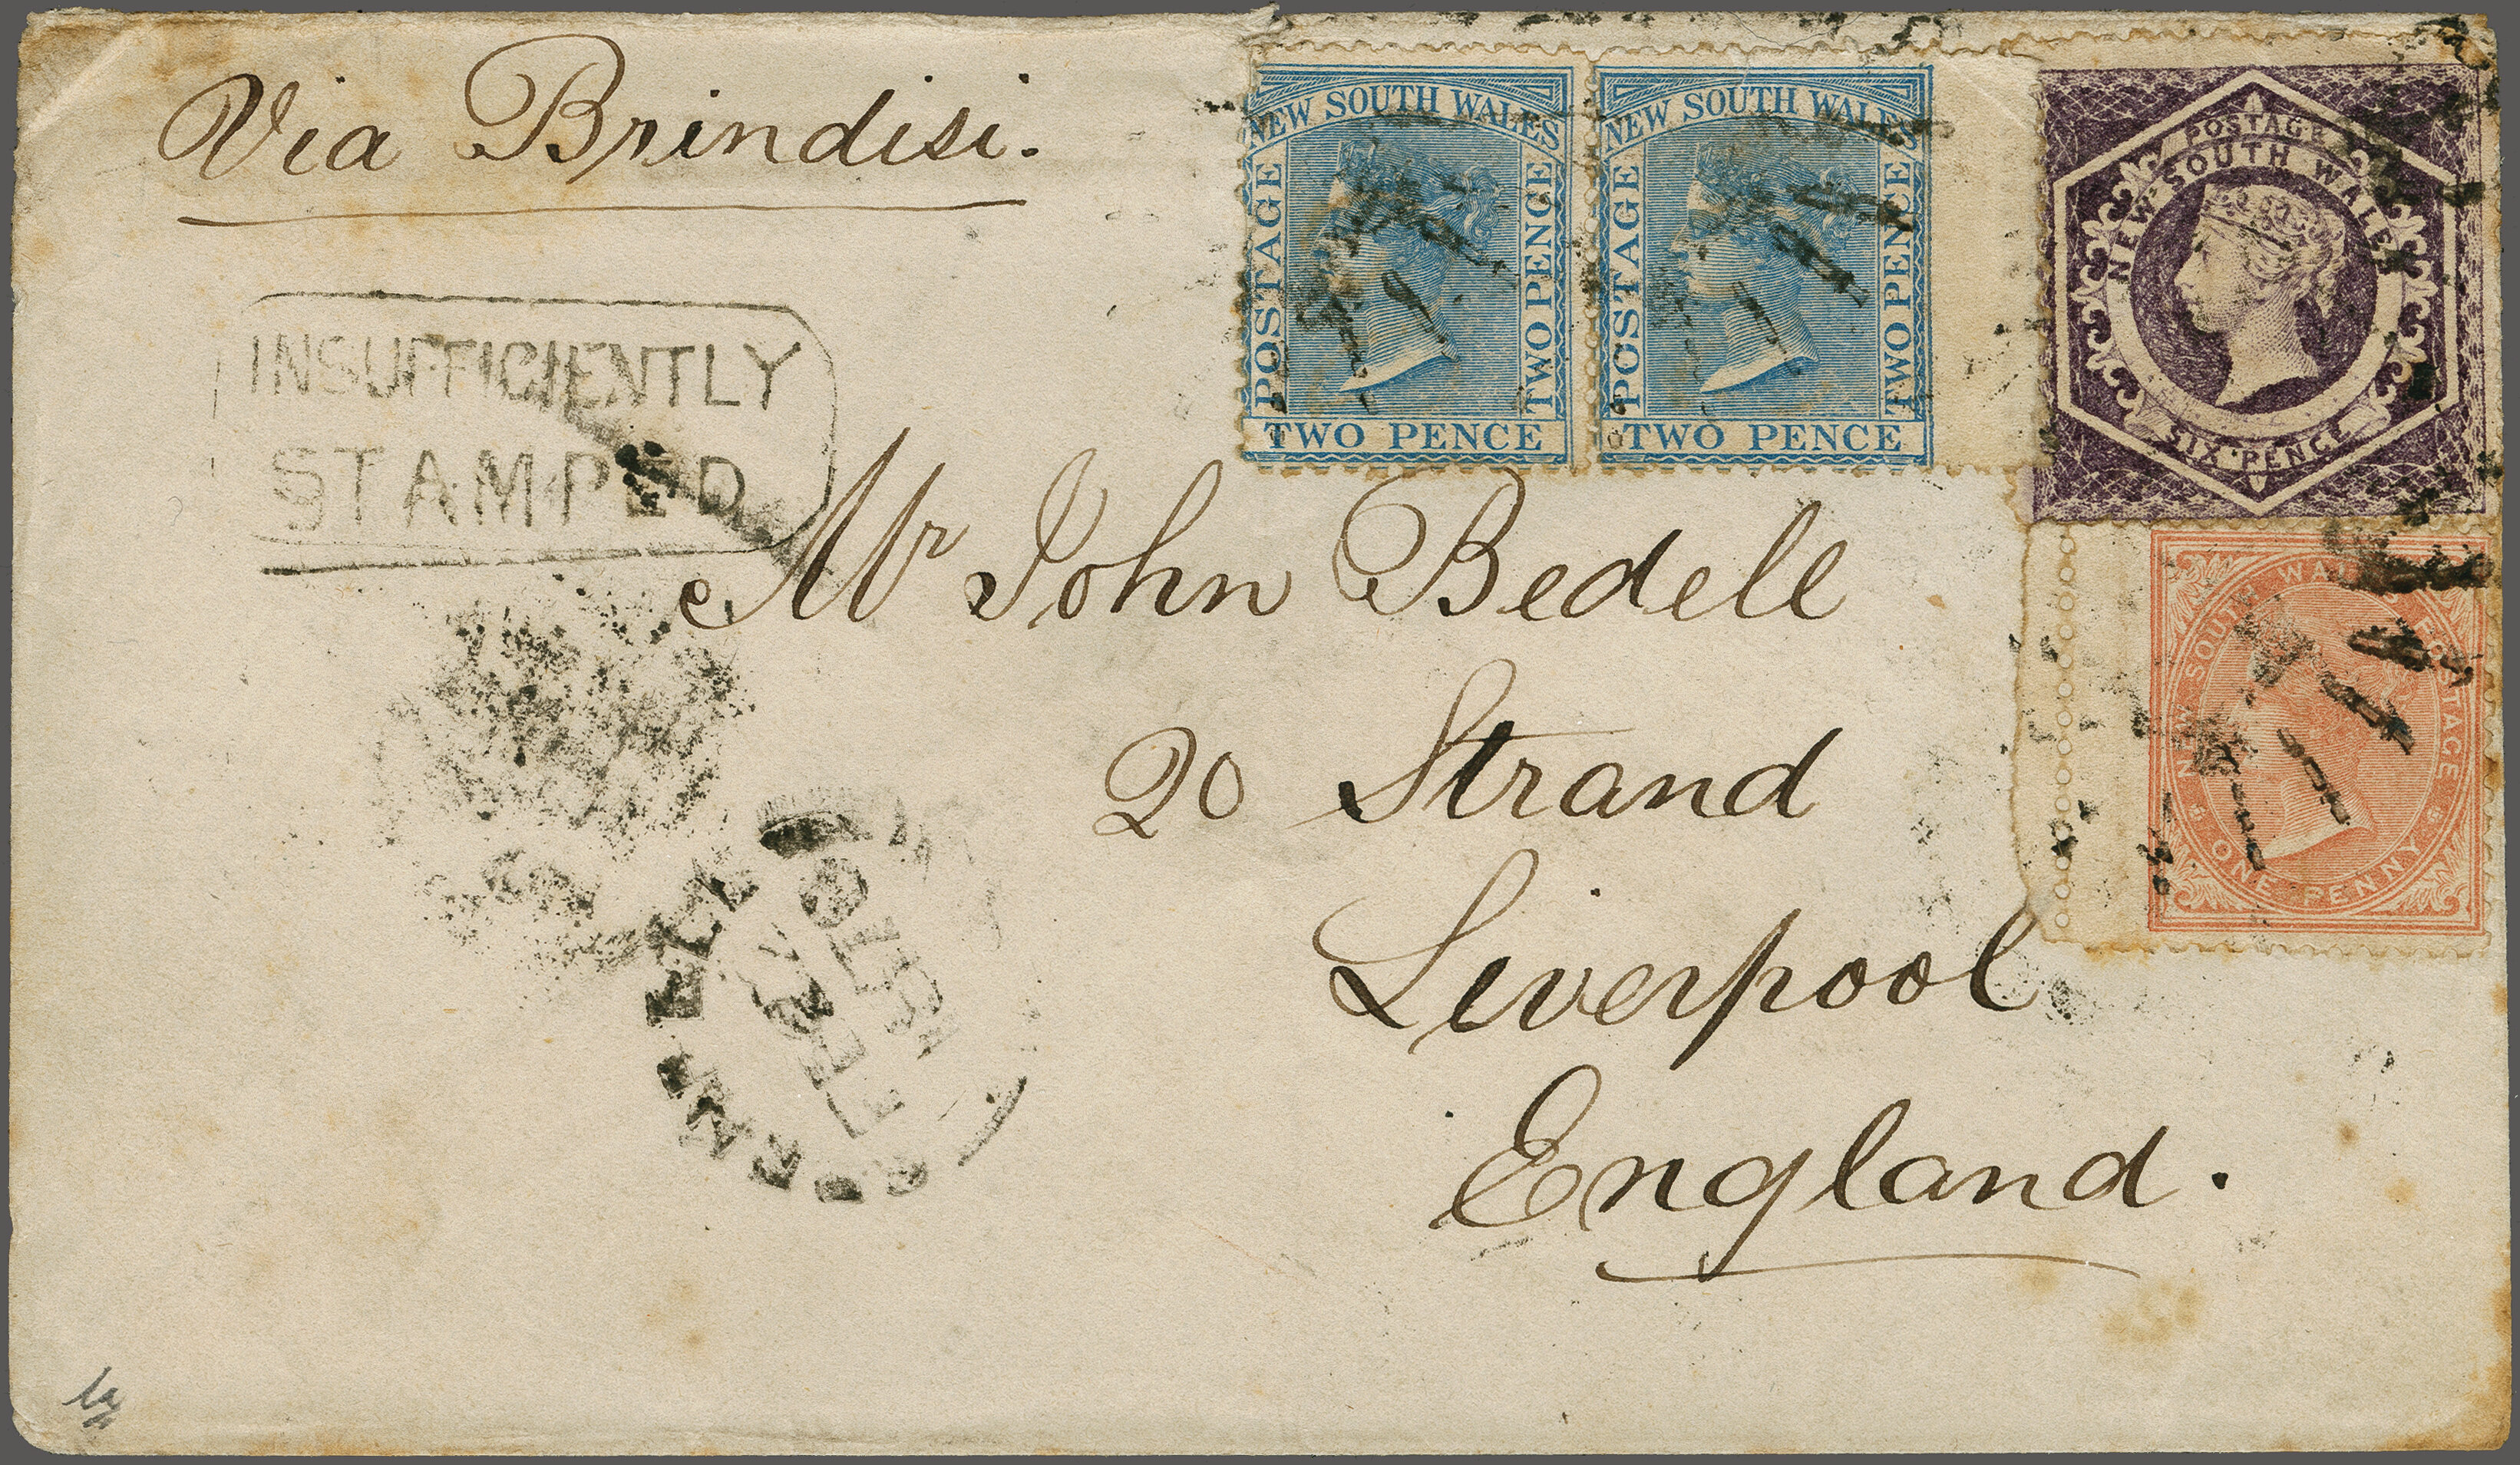 Via Brindisi.
NEW SOUTH WALES
POSTAGE
TWO PENCE
TWO PENCE
NEW SOUTH WALES
POSTAGE
TWO PENCE
TWO PENCE
POSTAGE
NEW SOUTH WALES
SIX PENCE
INSUFFICIENTLY
STAMPED
NEW SOUTH WALES POSTAGE
ONE PENNY
Mr John Bedell
20 Strand
Liverpool
England.